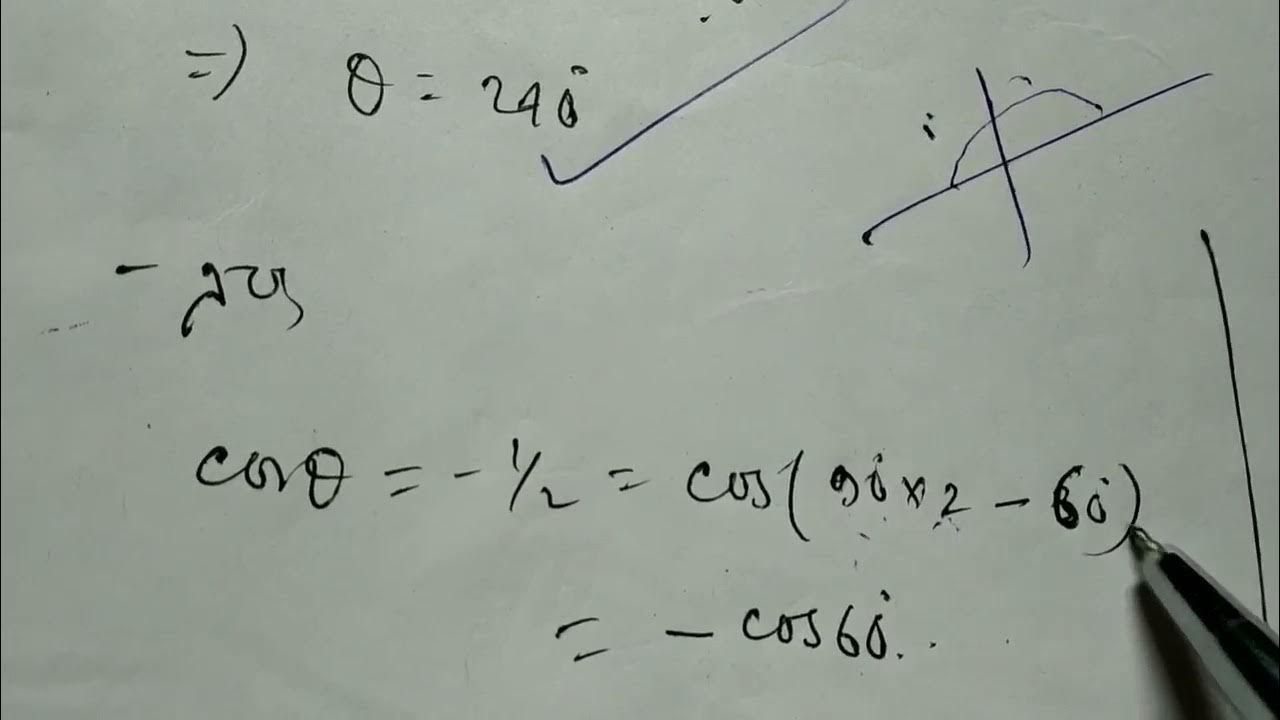 =) θ = 240°
cosθ = - 1/2 = cos(90°×2 - 60°)
= - cos60°.